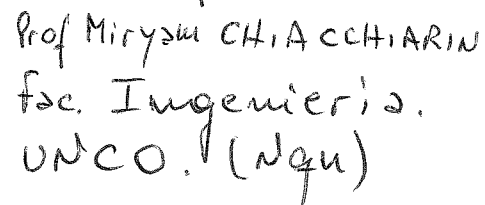 Prof Miryam CHIACCHIARIN
fac. Ingenieria.
UNCO. (Nqn)